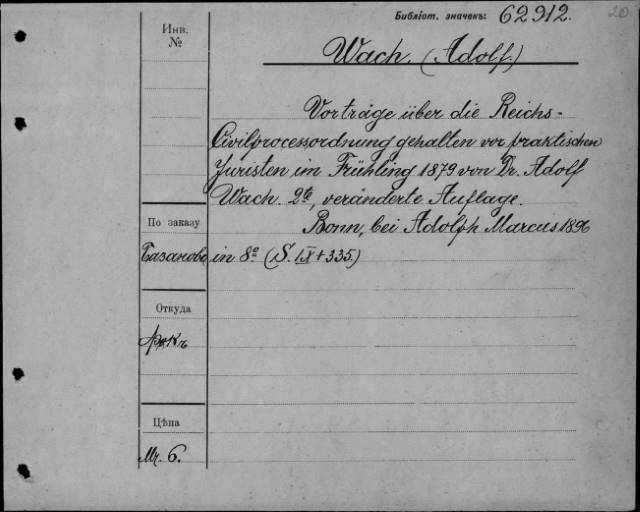 Библіот. значекъ: 62912.
20
Инв.
№
Wach. (Adolf.)
Vorträge über die Reichs-
Civilprocessordnung gehalten vor praktischen
Juristen im Frühling 1879 von Dr. Adolf
Wach. 2te, veränderte Auflage.
Bonn, bei Adolph Marcus 1896
in 8º. (S. IX+335.)
По заказу
Базанова
Откуда
Цѣна
Mr. 6.